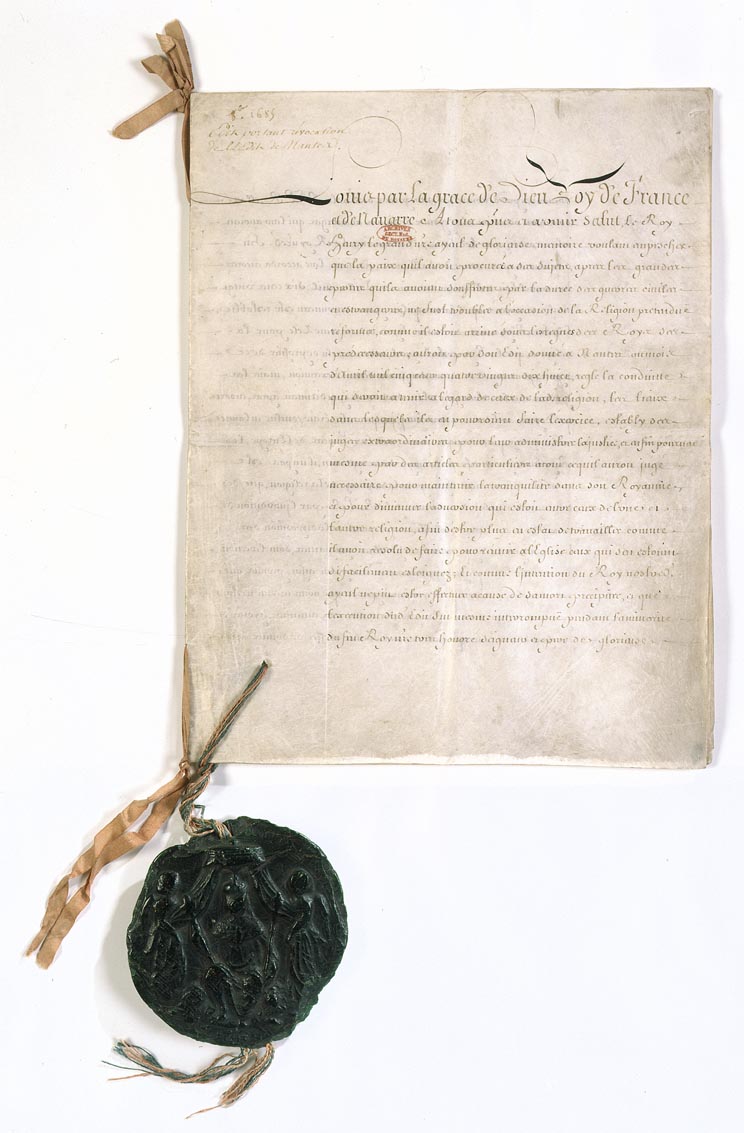 8.bre 1685
Edit portant révocation
de l'Edit de Nantes.
Louis par la grace de Dieu Roy de France
et de Navarre A tous presens et a venir Salut le Roy
Henry le grand nre ayeul de glorieuse memoire voulant empescher
que la paix qu'il avoit procurée a ses sujets apres les grandes
pertes qu'ils avoient souffertes par la durée des guerres civiles
et estrangeres, ne fust troublée a l'occasion de la Religion pretendue
reformée, comme il estoit arrivé sous les regnes des Roys ses
predecesseurs, auroit par son Edit donné a Nantes au mois
d'avril mil cinq cens quatre vingts dix huict, reglé la conduitte
qui a tenir a l'egard de ceux de lad. religion, les lieux
dans lesquels ils en pourroient faire l'exercice, estably des
juges extraordinaires pour leur administrer la justice, et enfin pourveu
mesme par des articles particuliers a tout ce qu'il auroit jugé
necessaire pour maintenir la tranquilité dans son Royaume
et pour diminuer l'aversion qui estoit entre ceux de l'une et
l'autre religion, afin d'estre plus en estat de travailler comme
il avoit resolu de faire pour reunir a l'Eglise ceux qui s'en estoient
si facilement esloignez; Et comme l'intention du Roy nostred.
ayeul ne put estre effectuée a cause de sa mort precipitée, et que
l'execution dud. Edit fut mesme interrompüe pendant la minorité
du feu Roy nre tres honoré seigneur et pere de glorieuse
ARCHIVES
SECT. HIST.
DU ROYAUME